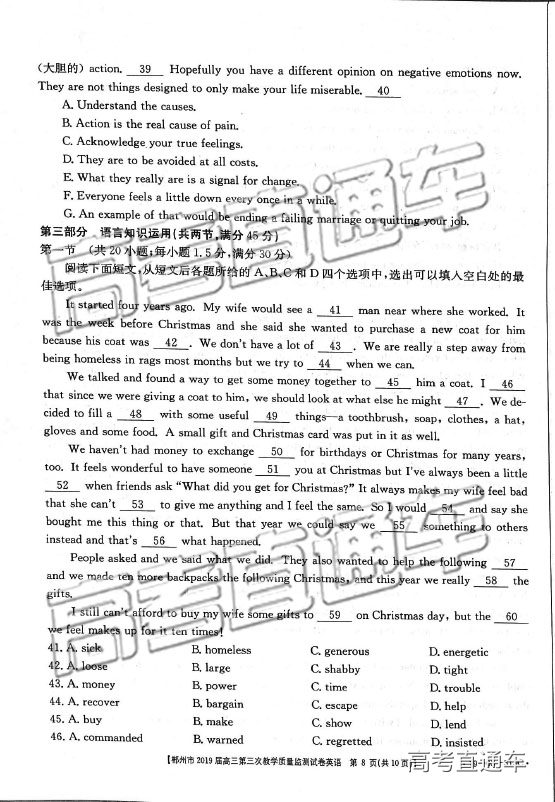 (大胆的) action. 39 Hopefully you have a different opinion on negative emotions now.
They are not things designed to only make your life miserable. 40
A. Understand the causes.
B. Action is the real cause of pain.
C. Acknowledge your true feelings.
D. They are to be avoided at all costs.
E. What they really are is a signal for change.
F. Everyone feels a little down every once in a while.
G. An example of that would be ending a failing marriage or quitting your job.
第三部分 语言知识运用(共两节,满分45分)
第一节 (共20小题;每小题1.5分,满分30分)
阅读下面短文,从短文后各题所给的A、B、C和D四个选项中,选出可以填入空白处的最
佳选项。
It started four years ago. My wife would see a 41 man near where she worked. It
was the week before Christmas and she said she wanted to purchase a new coat for him
because his coat was 42 . We don't have a lot of 43 . We are really a step away from
being homeless in rags most months but we try to 44 when we can.
We talked and found a way to get some money together to 45 him a coat. I 46
that since we were giving a coat to him, we should look at what else he might 47 . We de-
cided to fill a 48 with some useful 49 things—a toothbrush, soap, clothes, a hat,
gloves and some food. A small gift and Christmas card was put in it as well.
We haven't had money to exchange 50 for birthdays or Christmas for many years,
too. It feels wonderful to have someone 51 you at Christmas but I've always been a little
52 when friends ask "What did you get for Christmas?" It always makes my wife feel bad
that she can't 53 to give me anything and I feel the same. So I would 54 and say she
bought me this thing or that. But that year we could say we 55 something to others
instead and that's 56 what happened.
People asked and we said what we did. They also wanted to help the following 57
and we made ten more backpacks the following Christmas, and this year we really 58 the
gifts.
I still can't afford to buy my wife some gifts to 59 on Christmas day, but the 60
we feel makes up for it ten times!
41. A. sick B. homeless C. generous D. energetic
42. A. loose B. large C. shabby D. tight
43. A. money B. power C. time D. trouble
44. A. recover B. bargain C. escape D. help
45. A. buy B. make C. show D. lend
46. A. commanded B. warned C. regretted D. insisted
【郴州市2019届高三第三次教学质量监测试卷英语 第8页(共10页)
高考直通车
高考直通车